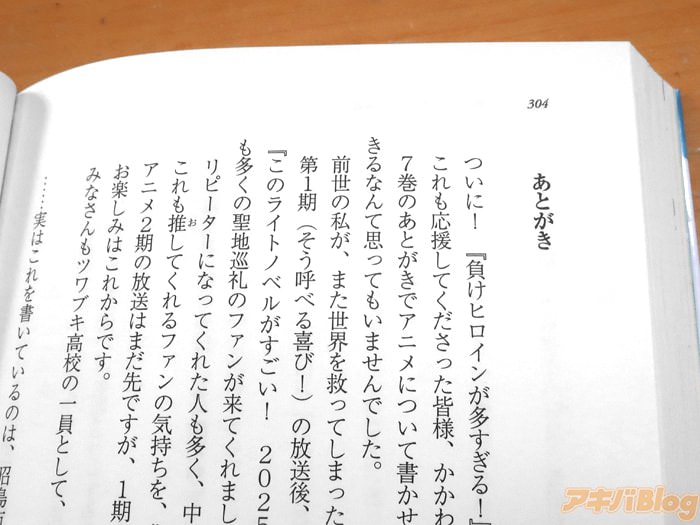 304
あとがき
ついに！　『負けヒロインが多すぎる！』
これも応援してくださった皆様、かかわ
７巻のあとがきでアニメについて書かせ
きるなんて思ってもいませんでした。
前世の私が、また世界を救ってしまった
第１期（そう呼べる喜び！）の放送後、
『このライトノベルがすごい！　2025
も多くの聖地巡礼のファンが来てくれまし
リピーターになってくれた人も多く、中
これも推おしてくれるファンの気持ちを、
アニメ２期の放送はまだ先ですが、１期
お楽しみはこれからです。
みなさんもツワブキ高校の一員として、
……実はこれを書いているのは、昭島
アキバBlog